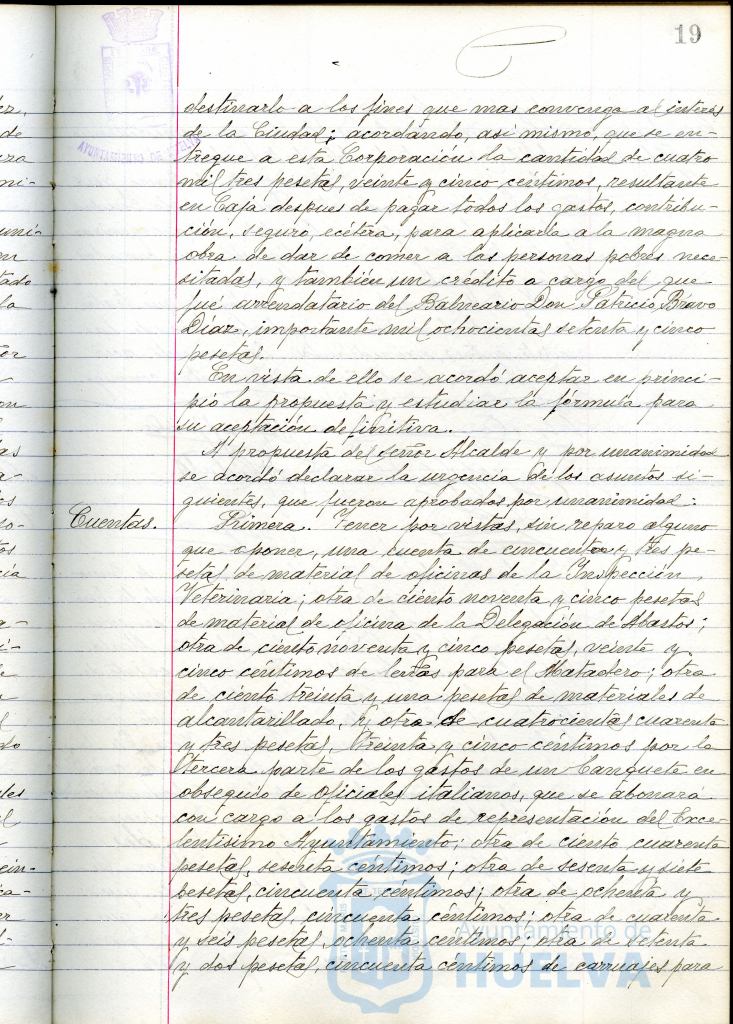 19
destinarlo a los fines que mas convenga al interés
de la Ciudad; acordando, asi mismo, que se en-
tregue a esta Corporación la cantidad de cuatro
mil tres pesetas, veinte y cinco céntimos, resultante
en Caja despues de pagar todos los gastos, contribu-
ción, seguro, ecétera, para aplicarla a la magna
obra de dar de comer a las personas pobres nece-
sitadas, y también un crédito a cargo del que
fué arrendatario del Balneario Don Patricio Bravo
Diaz, importante mil ochocientas setenta y cinco
pesetas.
En vista de ello se acordó aceptar en princi-
pio la propuesta y estudiar la fórmula para
su aceptación definitiva.
A propuesta del Señor Alcalde y por unanimidad
se acordó declarar la urgencia de los asuntos si-
guientes, que fueron aprobados por unanimidad:
Cuentas. Primera. Tener por vistas, sin reparo alguno
que oponer, una cuenta de cincuenta y tres pe-
setas de material de oficinas de la Inspección
Veterinaria; otra de ciento noventa y cinco pesetas
de material de oficina de la Delegación de Abastos;
otra de ciento noventa y cinco pesetas, veinte y
cinco céntimos de leñas para el Matadero; otra
de ciento treinta y una pesetas de materiales de
alcantarillado, y otra de cuatrocientas cuarenta
y tres pesetas, treinta y cinco céntimos por la
tercera parte de los gastos de un banquete en
obsequio de oficiales italianos, que se abonará
con cargo a los gastos de representación del Exce-
lentísimo Ayuntamiento; otra de ciento cuarenta
pesetas, sesenta céntimos; otra de sesenta y siete
pesetas, cincuenta céntimos; otra de ochenta y
tres pesetas, cincuenta céntimos; otra de cuarenta
y seis pesetas, ochenta céntimos; otra de setenta
y dos pesetas, cincuenta céntimos de carruajes para
Ayuntamiento de
HUELVA